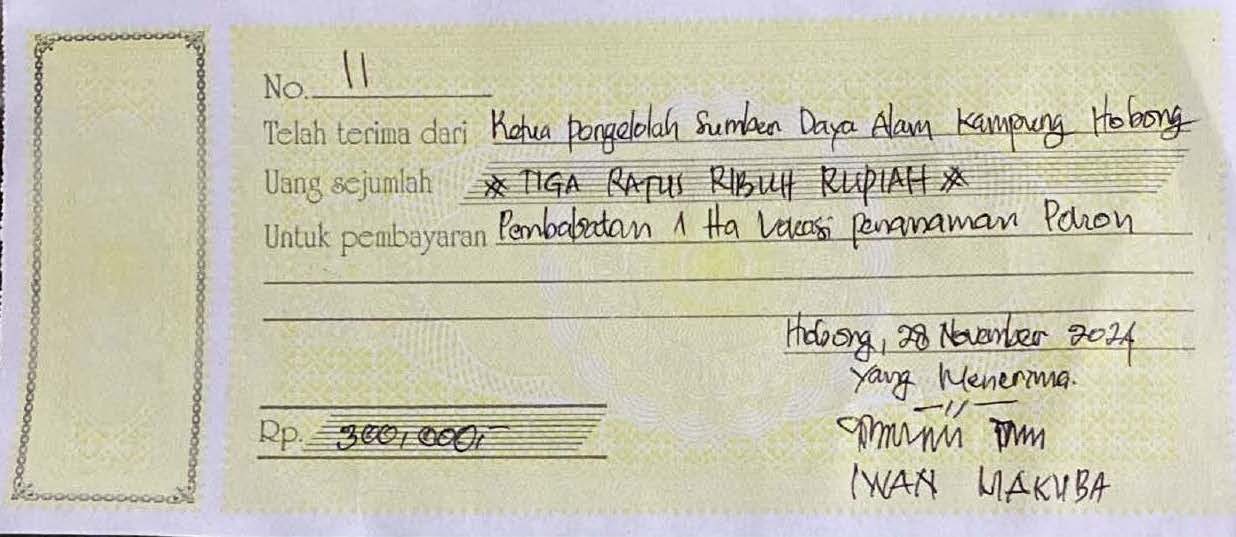 No. 11
Telah terima dari Ketua pengelolah Sumber Daya Alam Kampung Hobong
Uang sejumlah * TIGA RATUS RIBUH RUPIAH *
Untuk pembayaran Pembabatan 1 Ha Lokasi penanaman Pohon
Hobong, 28 November 2024
Yang Menerima.
Rp. 300,000,-
IWAN MAKUBA